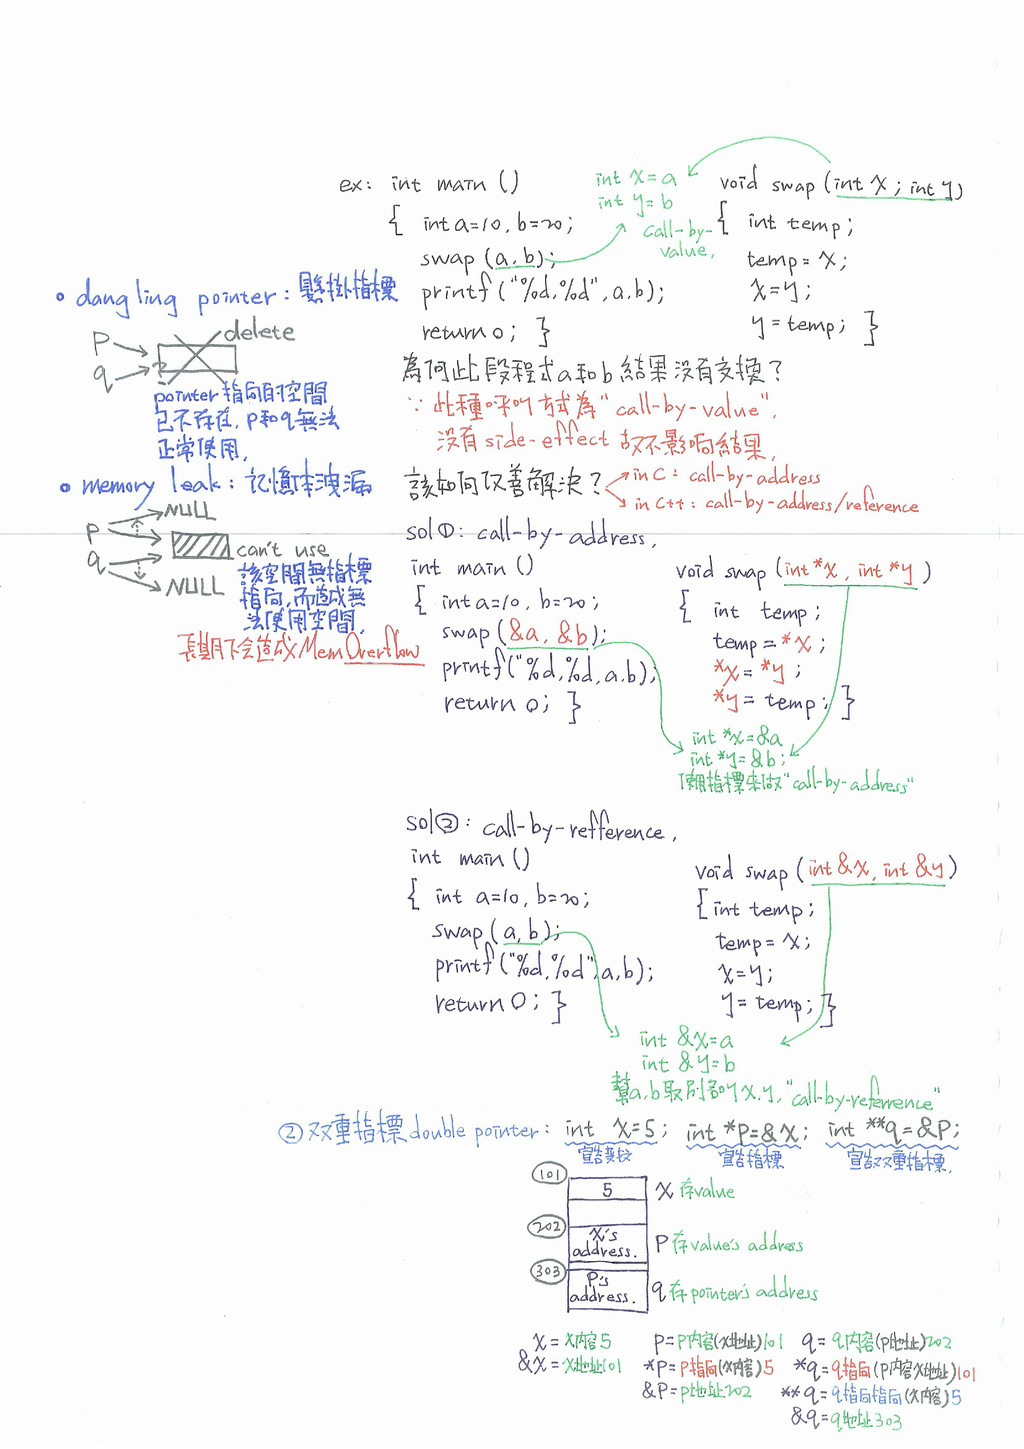 ex: int main ()
{ int a=10, b=20;
swap (a, b);
printf ("%d,%d", a,b);
return 0; }
int x=a
int y=b
call-by-
value,
void swap (int x; int y)
{ int temp;
temp = x;
x=y;
y = temp; }
• dangling pointer: 懸掛指標
P
q
delete
pointer 指向的空間
已不存在, p和q無法
正常使用,
為何此段程式a和b結果沒有交換?
∵ 此種呼叫方式為 "call-by-value",
沒有 side-effect 故不影响結果,
• memory leak: 記憶体洩漏
P
q
NULL
can't use
NULL
該空間無指標
指向,而造成無
法使用空間,
長期下會造成 Mem Overflow
該如何改善解決?
in C: call-by-address
in C++: call-by-address/reference
sol①: call-by-address,
int main ()
{ int a=10, b=20;
swap (&a, &b);
printf("%d,%d, a,b);
return 0; }
void swap (int *x, int *y )
{ int temp;
temp = *x;
*x = *y ;
*y = temp; }
int *x=&a
int *y=&b;
使用指標來做"call-by-address"
sol②: call-by-refference,
int main ()
{ int a=10, b=20;
swap (a, b);
printf ("%d,%d", a,b);
return 0; }
void swap (int &x, int &y)
{ int temp;
temp = x;
x=y;
y = temp; }
int &x=a
int &y=b
幫a,b取別名叫x,y, "call-by-referrence"
② 双重指標 double pointer: int x=5; int *P=&x; int **q=&P;
宣告變数 宣告指標 宣告双重指標,
101 5 x 存value
202 x's address. P 存value's address
303 P's address. q 存pointer's address
x = x內容 5
&x = x地址101
P=P內容(x地址)101
*P=P指向(x內容)5
&P=P地址202
q=q內容(P地址)202
*q=q指向(P內容x地址)101
**q=q指向指向(x內容)5
&q=q地址303